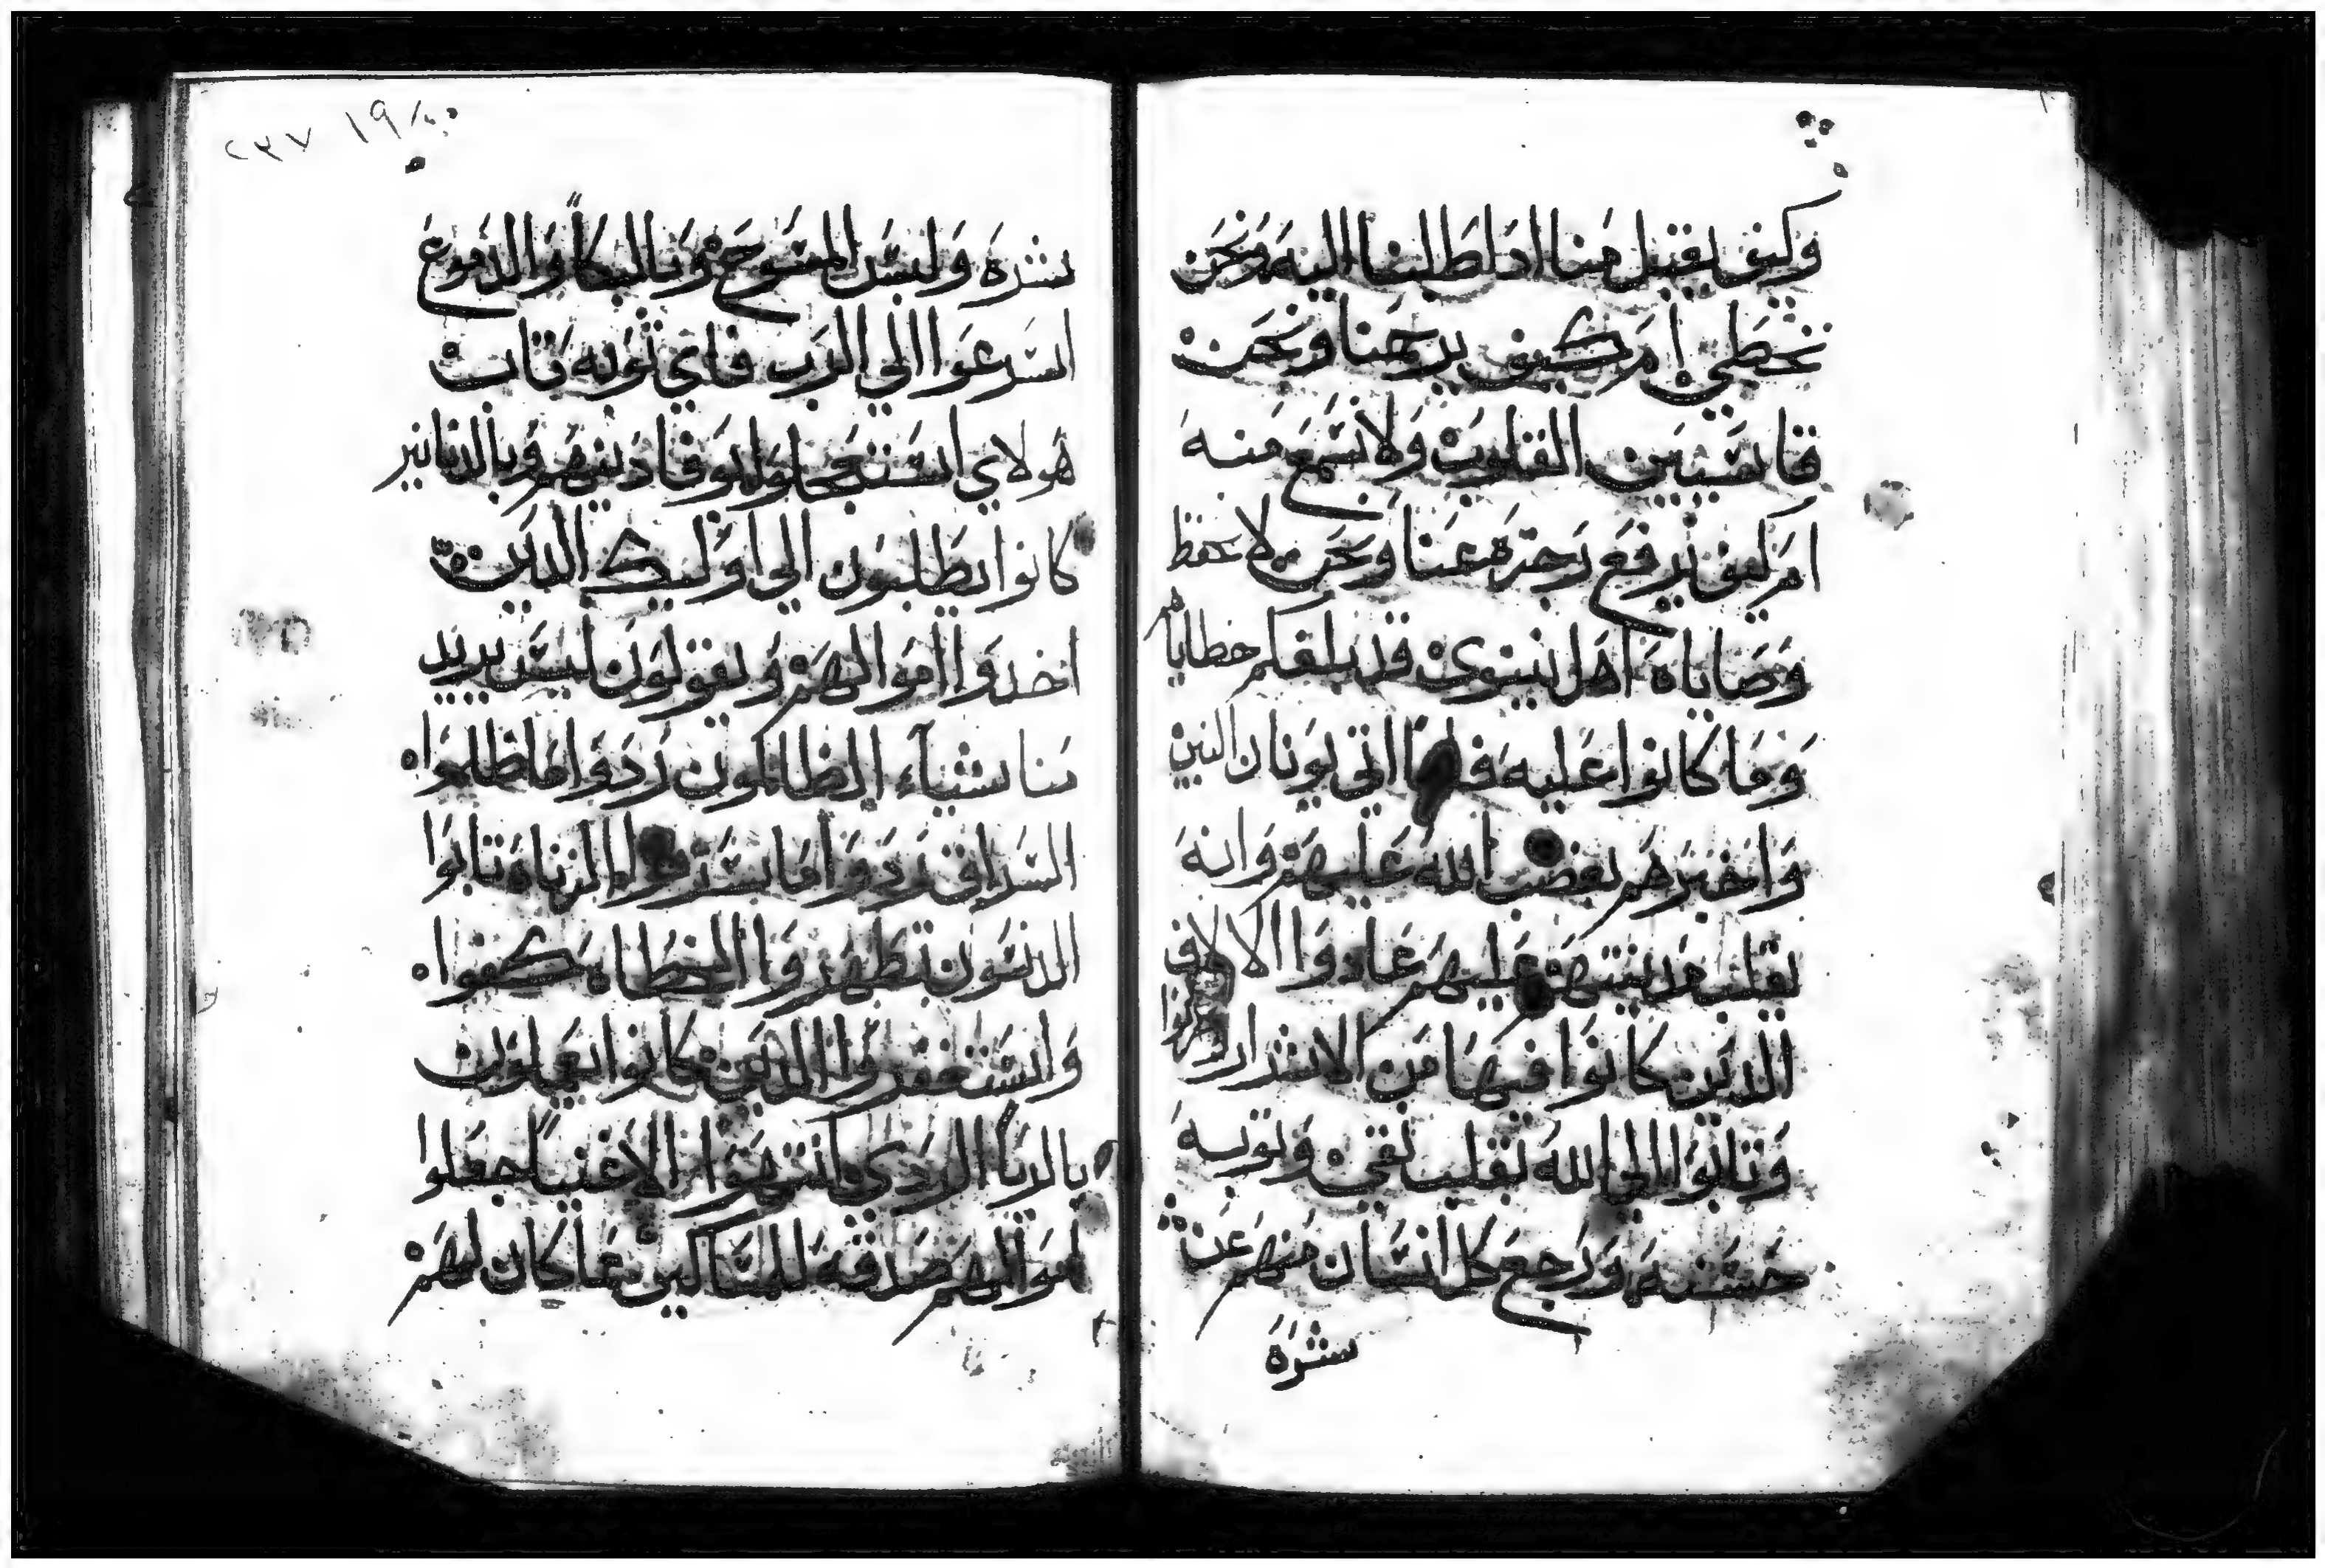 وكيف يقبل منا اد اطلبنا اليه ونحن
نخطي ام كيف يرحمنا ونحن
قاسيين القلوب ولا نسمع منه
ام كيف يرفع رجزه عنا ونحن لا نحفظ
وصاياه اهل نينوى قد بلغكم خطاياهم
وما كانوا عليه فلما اتى يونان النبي
واخبرهم بغضب الله عليهم وانه
يقلب مدينتهم عليهم عادوا الالوف
الدين كانوا فيها من الاشرار وتركوا
وتابوا الى الله بقلب نقي وتوبه
حسنه ورجع كل انسان منهم عن
شره
٢٣٧ ١٩
شره ولبس المسوح وبالبكا والدموع
اسرعوا الى الرب فاي توبه تابت
هولاي استعجلوا يوفا دينهم وبالدنانير
كانوا يطلبون الى اوليك الدين
اخدوا اموالهم ويقولون ليس يريد
منا شياء الظالمون ردوا ما ظلموا
السراق ردوا ما سرقوا الزناه تابوا
الدنسون تطهروا الخطاه كفوا
واستغفروا الدين كانوا يعملون
بالربا الردي وانتهوا الاغنيا جعلوا
اموالهم صدقه للمساكين مما كان لهم